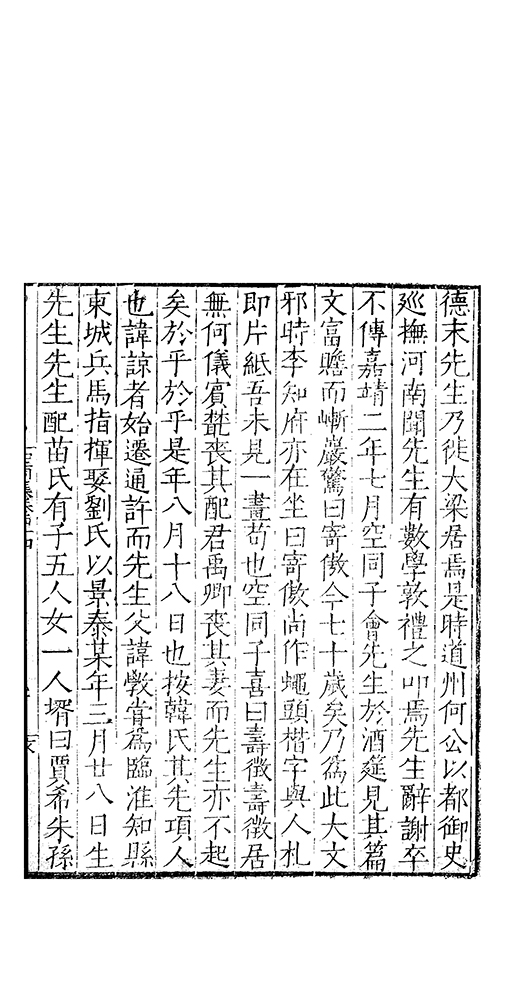 德末先生乃徙大梁居焉是時道州何公以都御史
廵撫河南聞先生有數學敦禮之叩焉先生辭謝卒
不傳嘉靖二年七月空同子會先生於酒筵見其篇
文富贍而嶄巖驚曰寄傲今七十歲矣乃爲此大文
邪時李知府亦在坐曰寄傲尚作蠅頭楷字與人札
即片紙吾未見一畫苟也空同子喜曰壽徵壽徵居
無何儀賓甏喪其配君禹卿喪其妻而先生亦不起
矣於乎於乎是年八月十八日也按韓氏其先項人
也諱諒者始遷通許而先生父諱斆嘗爲臨淮知縣
東城兵馬指揮娶劉氏以景泰某年三月廿八日生
先生先生配苗氏有子五人女一人壻曰賈希朱孫